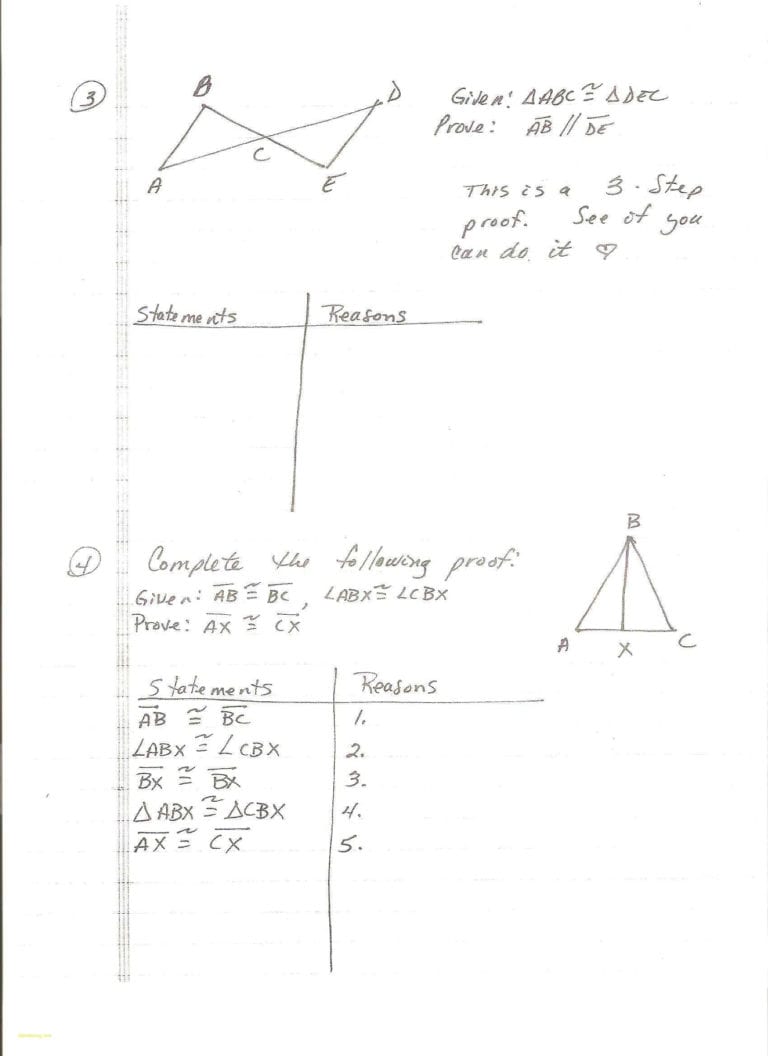 3
B
D
C
A
E
Given: △ABC ≅ △DEC
Prove: AB // DE
This is a 3-Step
proof. See if you
can do it ♡
Statements Reasons
4 Complete the following proof:
Given: AB ≅ BC, ∠ABX ≅ ∠CBX
Prove: AX ≅ CX
B
A
X
C
Statements Reasons
AB ≅ BC 1.
∠ABX ≅ ∠CBX 2.
BX ≅ BX 3.
△ABX ≅ △CBX 4.
AX ≅ CX 5.